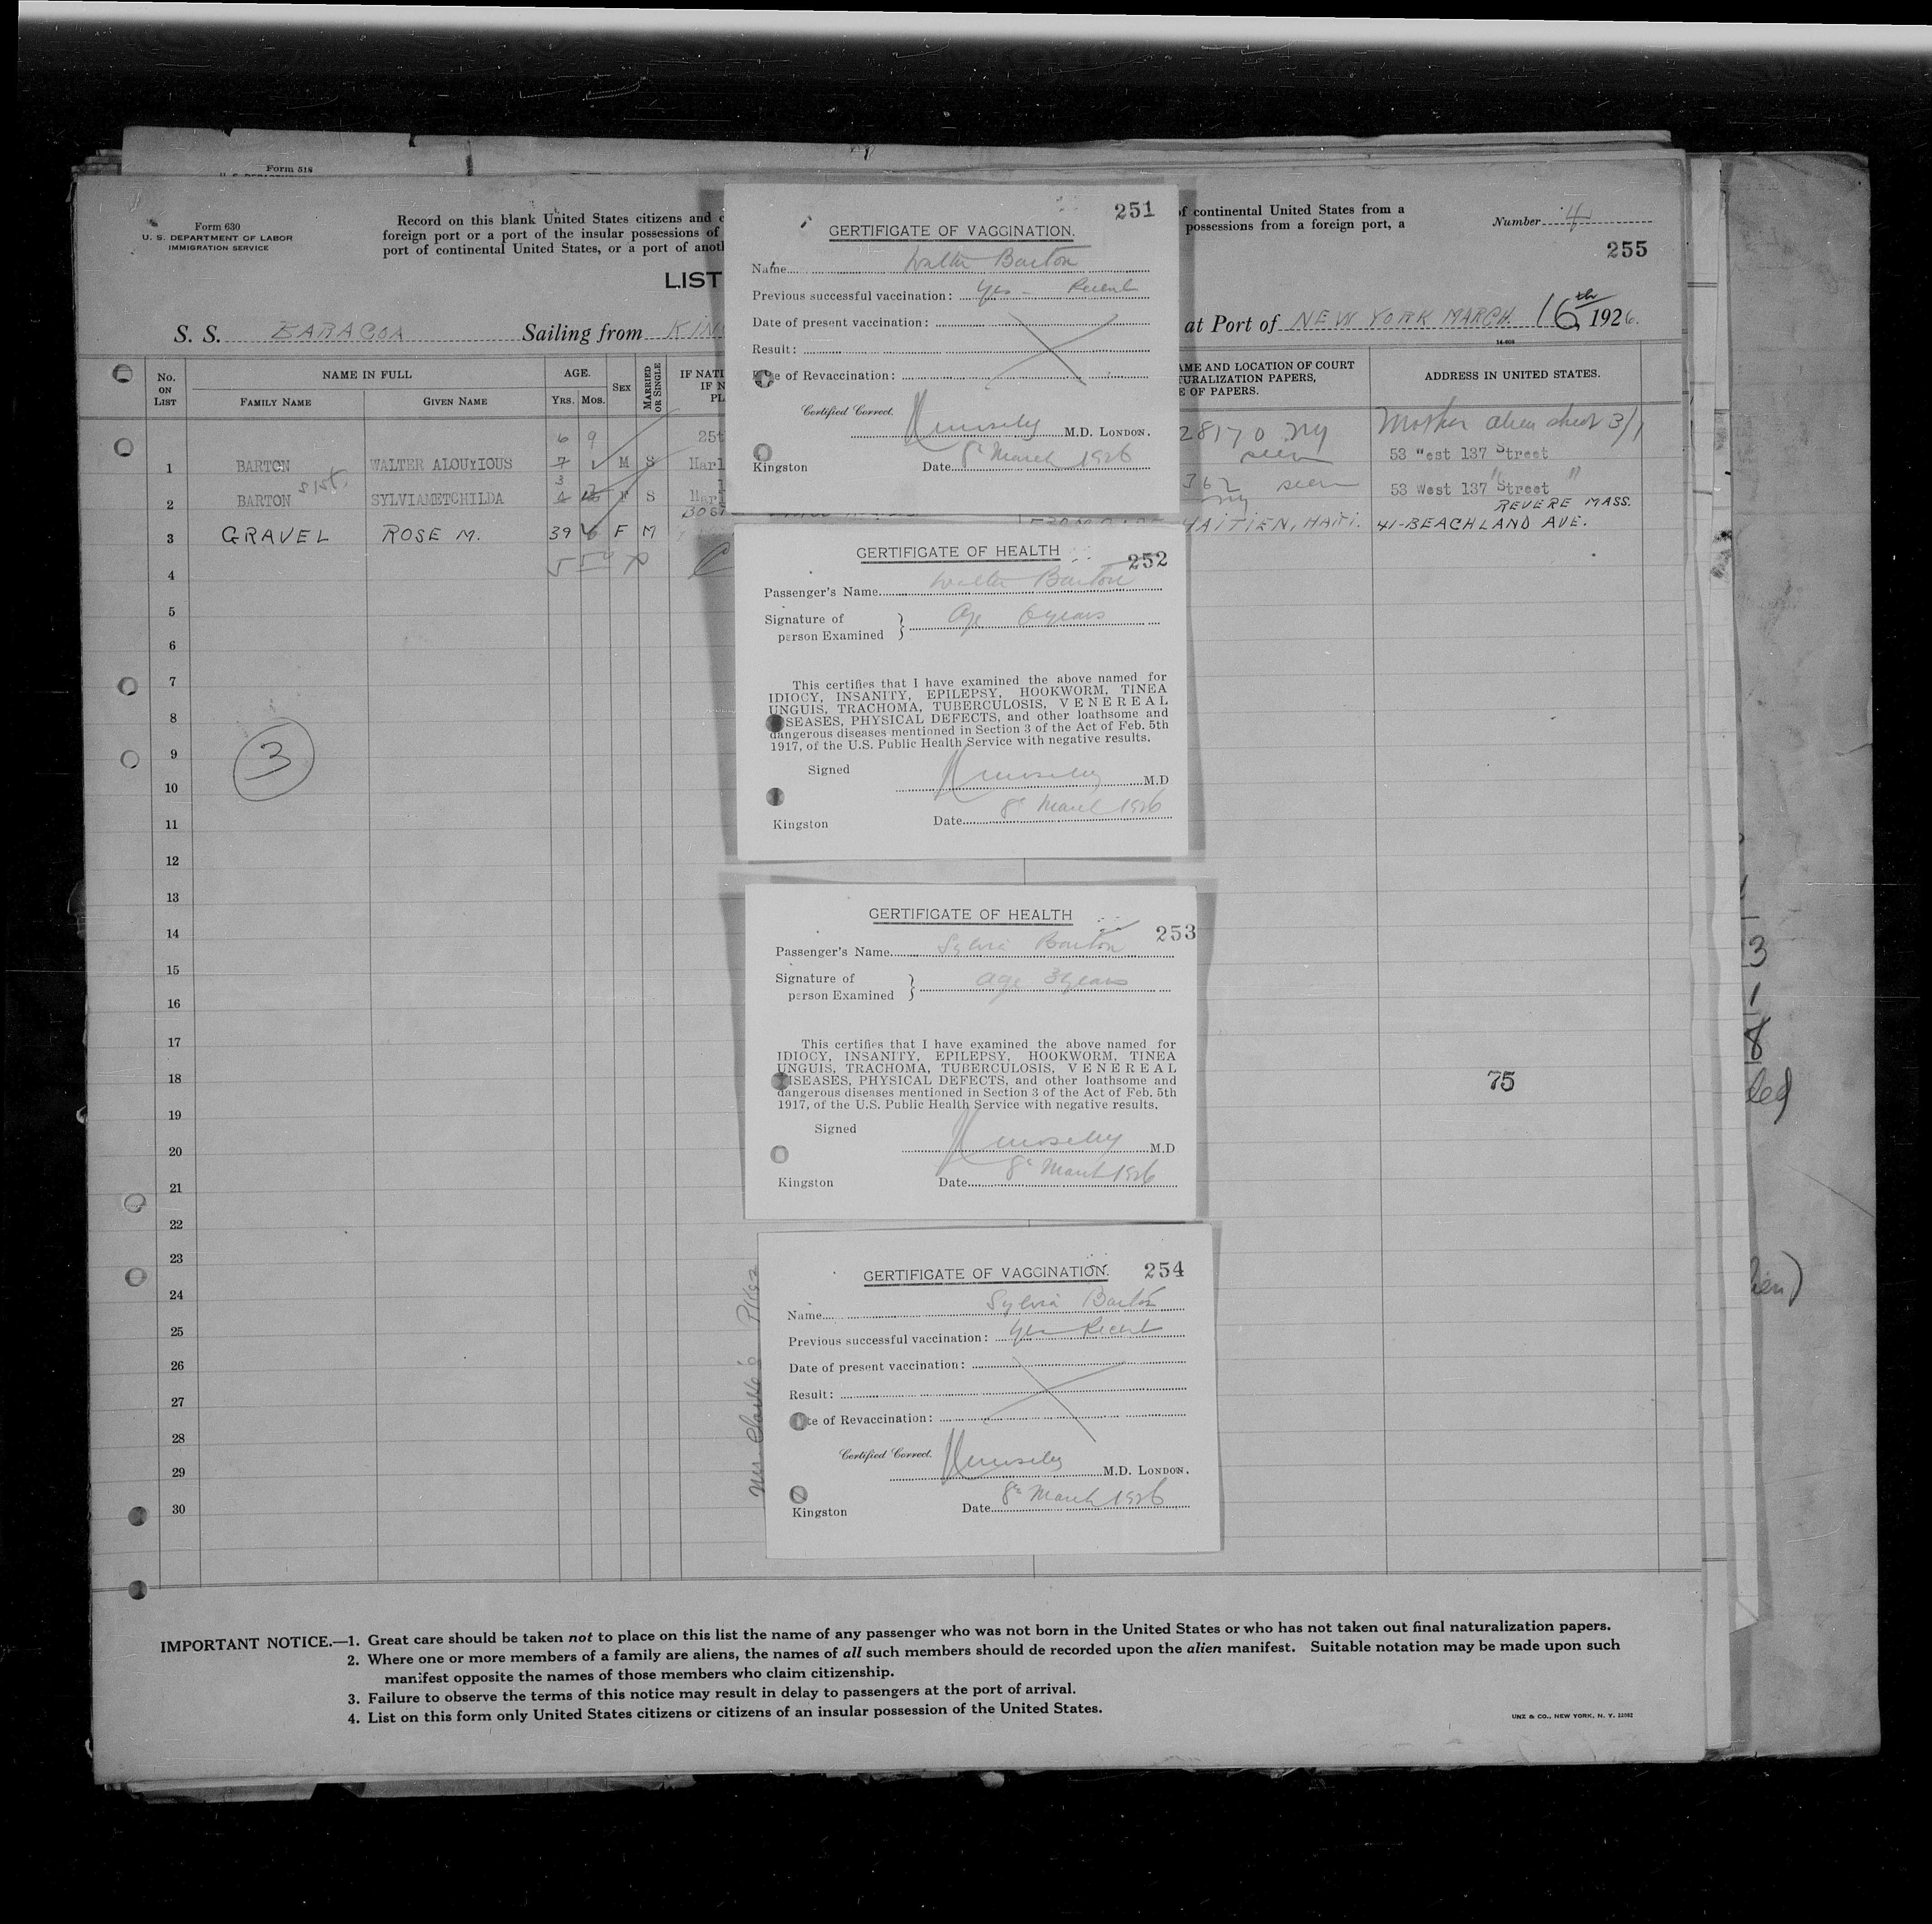 Form 518
Form 630
U. S. DEPARTMENT OF LABOR
IMMIGRATION SERVICE
Record on this blank United States citizens and
foreign port or a port of the insular possessions of
port of continental United States, or a port of
of continental United States from a
possessions from a foreign port, a
Number 4
255
LIST
S. S. BARACOA Sailing from
at Port of NEW YORK MARCH 16th 1926.
14-608
No. ON LIST
NAME IN FULL
FAMILY NAME
GIVEN NAME
AGE.
YRS. MOS.
SEX
MARRIED OR SINGLE
AND LOCATION OF COURT
PAPERS,
OF PAPERS.
ADDRESS IN UNITED STATES.
6 9
28170 ny
Mother alien sheet 3/1
1 BARTON WALTER ALOUYIOUS 7 M S
seen
53 West 137 Street
sist.
3
2 BARTON SYLVIAMETCHILDA 4 F S
362 seen
ny
53 West 137 Street
REVERE MASS.
3 GRAVEL ROSE M. 39 6 F M
HAITIEN, HAITI. 41-BEACHLAND AVE.
4
5
6
7
8
9
10
11
12
13
14
15
16
17
18
19
20
21
22
23
24
25
26
27
28
29
30
3
75
251
CERTIFICATE OF VACCINATION.
Name Walter Barton
Previous successful vaccination: Yes - Recent
Date of present vaccination:
Result:
Date of Revaccination:
Certified Correct.
M.D. LONDON.
Kingston Date 8th March 1926
CERTIFICATE OF HEALTH
252
Passenger's Name Walter Barton
Signature of person Examined Age 6 years
This certifies that I have examined the above named for
IDIOCY, INSANITY, EPILEPSY, HOOKWORM, TINEA
UNGUIS, TRACHOMA, TUBERCULOSIS, VENEREAL
DISEASES, PHYSICAL DEFECTS, and other loathsome and
dangerous diseases mentioned in Section 3 of the Act of Feb. 5th
1917, of the U.S. Public Health Service with negative results.
Signed
M.D
Kingston Date 8th March 1926
CERTIFICATE OF HEALTH
253
Passenger's Name Sylvia Barton
Signature of person Examined age 3 years
This certifies that I have examined the above named for
IDIOCY, INSANITY, EPILEPSY, HOOKWORM, TINEA
UNGUIS, TRACHOMA, TUBERCULOSIS, VENEREAL
DISEASES, PHYSICAL DEFECTS, and other loathsome and
dangerous diseases mentioned in Section 3 of the Act of Feb. 5th
1917, of the U.S. Public Health Service with negative results.
Signed
M.D
Kingston Date 8th March 1926
CERTIFICATE OF VACCINATION.
254
Name Sylvia Barton
Previous successful vaccination: Yes Recent
Date of present vaccination:
Result:
Date of Revaccination:
Certified Correct.
M.D. LONDON.
Kingston Date 8th March 1926
IMPORTANT NOTICE.—1. Great care should be taken not to place on this list the name of any passenger who was not born in the United States or who has not taken out final naturalization papers.
2. Where one or more members of a family are aliens, the names of all such members should de recorded upon the alien manifest. Suitable notation may be made upon such
manifest opposite the names of those members who claim citizenship.
3. Failure to observe the terms of this notice may result in delay to passengers at the port of arrival.
4. List on this form only United States citizens or citizens of an insular possession of the United States.
UNZ & CO., NEW YORK, N. Y.